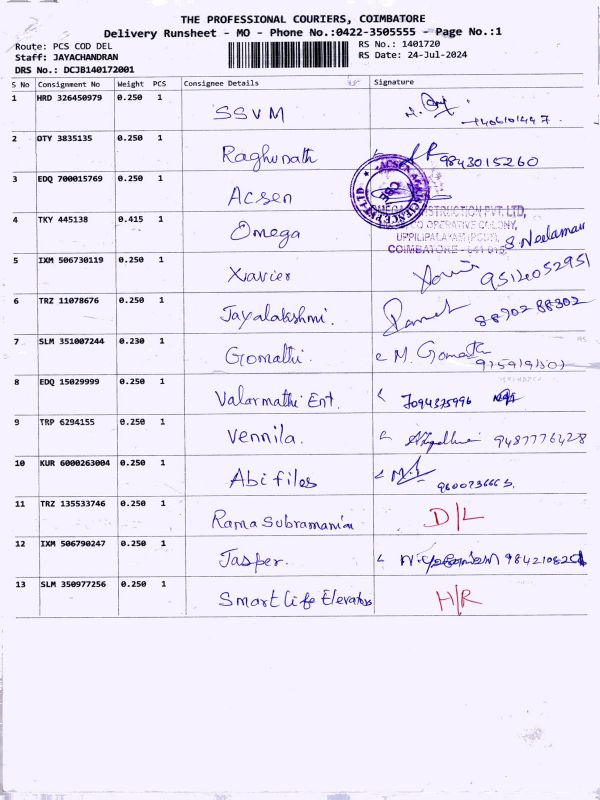 THE PROFESSIONAL COURIERS, COIMBATORE
Delivery Runsheet - MO - Phone No.:0422-3505555 - Page No.:1
Route: PCS COD DEL RS No.: 1401720
Staff: JAYACHANDRAN RS Date: 24-Jul-2024
DRS No.: DCJB140172001
S No Consignment No Weight PCS Consignee Details Signature
1 HRD 326450979 0.250 1 SSVM
2 OTY 3835135 0.250 1 Raghunath 9843015260
3 EDQ 700015769 0.250 1 Acsen
4 TKY 445138 0.415 1 Omega S. Neelaman
OMEGA CONSTRUCTION PVT. LTD,
CO OPERATIVE COLONY,
UPPILIPALAYAM (POST),
COIMBATORE - 641 015.
5 IXM 506730119 0.250 1 Xavier 9514052951
6 TRZ 11078676 0.250 1 Jayalakshmi. 88702 88302
7 SLM 351007244 0.230 1 Gomathi. M. Gomathi
8 EDQ 15029999 0.250 1 Valarmathi Ent. 7094375996
9 TRP 6294155 0.250 1 Vennila. 9487776428
10 KUR 6000263004 0.250 1 Abi files
11 TRZ 135533746 0.250 1 Rama Subramanian D/L
12 IXM 506790247 0.250 1 Jasper.
13 SLM 350977256 0.250 1 Smart life Elevators H/R